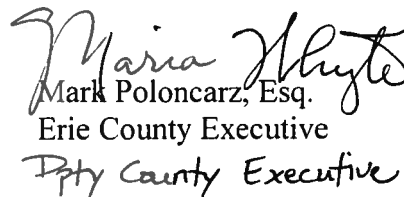 Maria Whyte
Mark Poloncarz, Esq.
Erie County Executive
Dpty County Executive